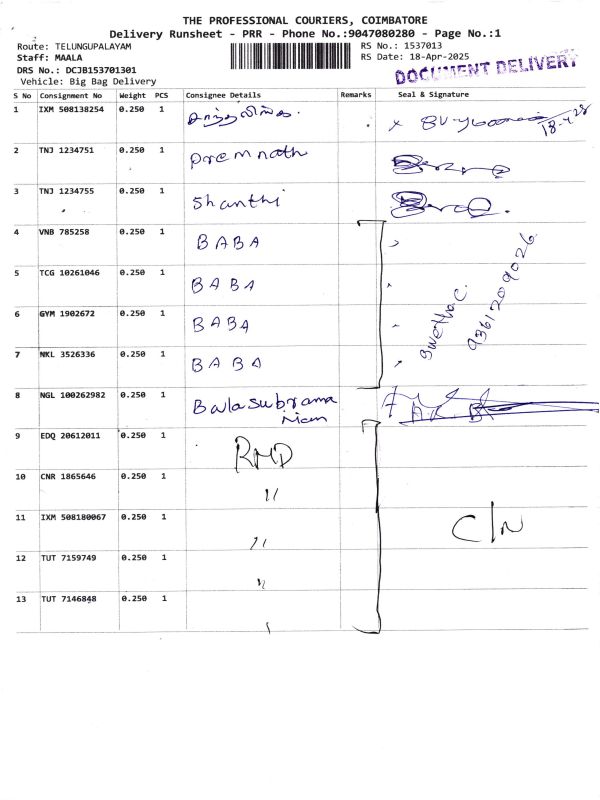 THE PROFESSIONAL COURIERS, COIMBATORE
Delivery Runsheet - PRR - Phone No.:9047080280 - Page No.:1
Route: TELUNGUPALAYAM
Staff: MAALA
DRS No.: DCJB153701301
Vehicle: Big Bag Delivery
RS No.: 1537013
RS Date: 18-Apr-2025
DOCUMENT DELIVERY
S No Consignment No Weight PCS Consignee Details Remarks Seal & Signature
1 IXM 508138254 0.250 1
2 TNJ 1234751 0.250 1 Premnath
3 TNJ 1234755 0.250 1 Shanthi
4 VNB 785258 0.250 1 BABA
5 TCG 10261046 0.250 1 BABA
6 GYM 1902672 0.250 1 BABA
7 NKL 3526336 0.250 1 BABA
Swetha.C.
9361209026
8 NGL 100262982 0.250 1 Balasubrama
niam
9 EDQ 20612011 0.250 1 RMD
10 CNR 1865646 0.250 1 "
11 IXM 508180067 0.250 1 " C/N
12 TUT 7159749 0.250 1 "
13 TUT 7146848 0.250 1